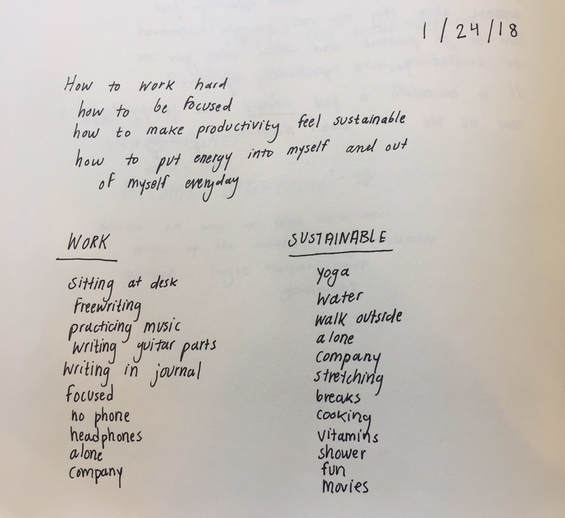 1/24/18
How to work hard
how to be focused
how to make productivity feel sustainable
how to put energy into myself and out
of myself everyday
WORK
sitting at desk
freewriting
practicing music
writing guitar parts
writing in journal
focused
no phone
headphones
alone
company
SUSTAINABLE
yoga
water
walk outside
alone
company
stretching
breaks
cooking
vitamins
shower
fun
movies